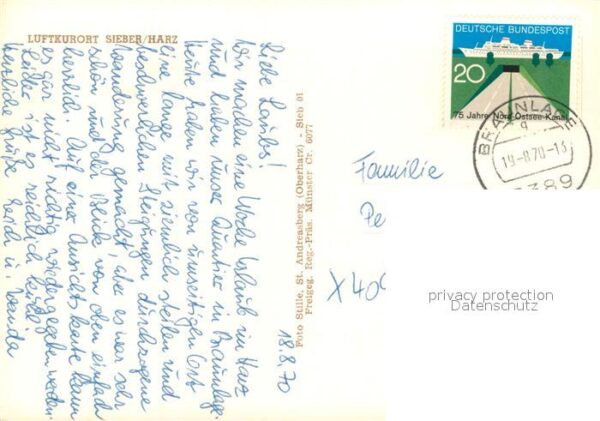 LUFTKURORT SIEBER/HARZ
18.8.70
Liebe Laubs!
Wir machen eine Woche Urlaub im Harz
und haben unser Quartier in Braunlage.
Heute haben wir von umseitigen Ort
eine lange mit ziemlich steilen und
beschwerlichen Steigungen durchzogene
Wanderung gemacht, aber es war sehr
schön und der Blick von oben einfach
herrlich. Auf einer Ansichtskarte kann
es gar nicht richtig wiedergegeben werden.
Leider ist es reichlich kühl.
Herzliche Grüße
Foto Stille, St. Andreasberg (Oberharz) - Sieb 01
Freigeg. Reg.-Präs. Münster Ct. 6077
DEUTSCHE BUNDESPOST
20
75 Jahre Nord-Ostsee-Kanal
BRAUNLAG
19.-8.70-13
3389
Familie
Pe
X 40
privacy protection
Datenschutz